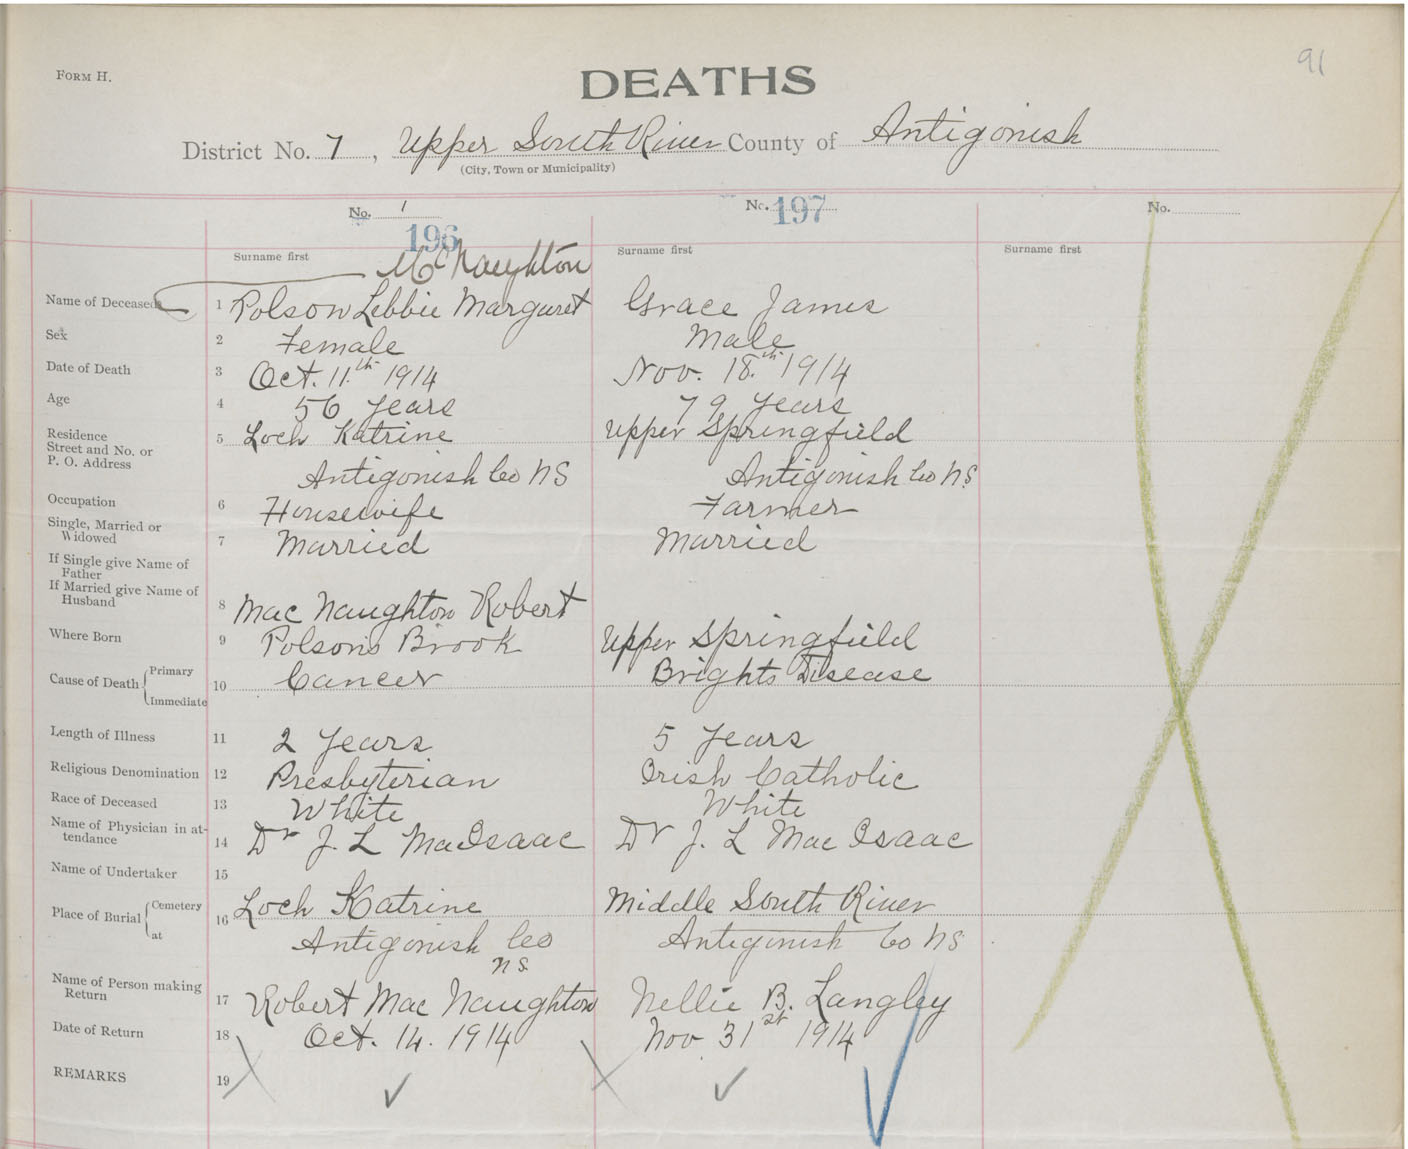 91
FORM H.
DEATHS
District No. 7, Upper South River County of Antigonish
(City, Town or Municipality)
No. 1 No. 197 No.
196
Surname first Surname first Surname first
McNaughton
Name of Deceased 1 Polson Lebbie Margaret Grace James
Sex 2 Female Male
Date of Death 3 Oct. 11th 1914 Nov. 18th 1914
Age 4 56 years 79 years
Residence Street and No. or P. O. Address 5 Loch Katrine Upper Springfield
Antigonish Co NS Antigonish Co NS
Occupation 6 Housewife Farmer
Single, Married or Widowed 7 Married Married
If Single give Name of Father
If Married give Name of Husband 8 Mac Naughton Robert
Where Born 9 Polson's Brook Upper Springfield
Cause of Death { Primary Immediate 10 Cancer Brights Disease
Length of Illness 11 2 years 5 years
Religious Denomination 12 Presbyterian Irish Catholic
Race of Deceased 13 White White
Name of Physician in attendance 14 Dr J. L MacIsaac Dr J. L Mac Isaac
Name of Undertaker 15
Place of Burial { Cemetery at 16 Loch Katrine Middle South River
Antigonish Co Antigonish Co NS
NS
Name of Person making Return 17 Robert Mac Naughton Nellie B. Langley
Date of Return 18 Oct. 14. 1914 Nov 31st 1914
REMARKS 19